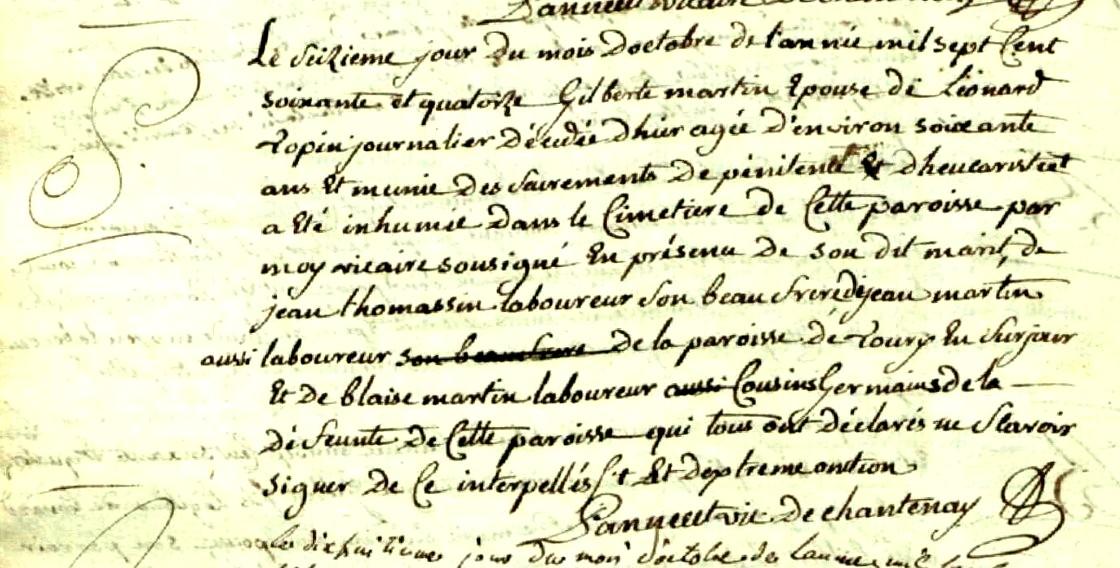 S.
Le Seizieme jour du mois doctobre de l'année mil sept Cent
soixante et quatorze Gilberte martin Epouse de Léonard
Topin journalier Décédée dhier agée d'environ soixante
ans Et munie des sacrements De pénitence Et dheucaristie et
a Eté inhumée dans le Cimetiere de Cette paroisse par
moy vicaire sousigné En présence De son dit marit, de
jean thomassin laboureur son beau frere de jean martin
aussi laboureur son beau frere De la paroisse de Toury En Surjour
Et De blaise martin laboureur aussi Cousins Germains de la
défeunte de Cette paroisse qui tous ont déclarés ne Scavoir
signer De Ce interpellés st Et dextreme ontion
vic De chantenay
Le dixhuitieme jour du mois d'octobre de lannee mil